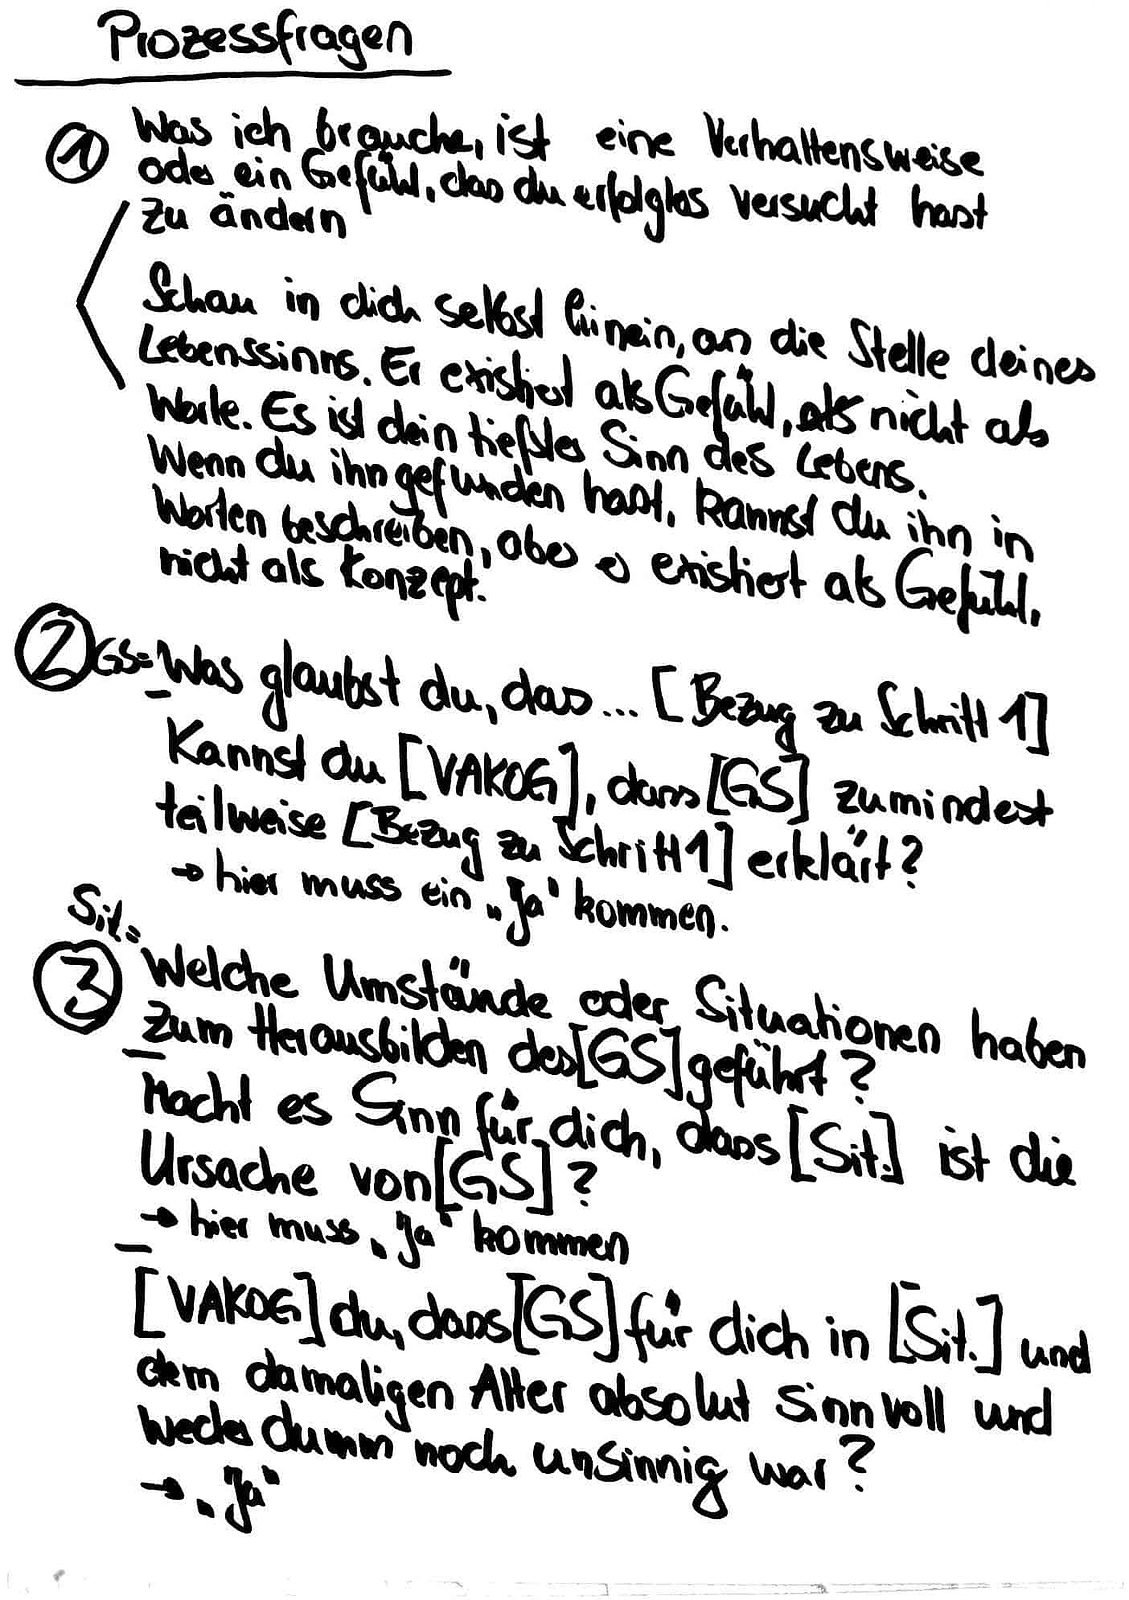 Prozessfragen
① Was ich brauche, ist eine Verhaltensweise
oder ein Gefühl, das du erfolglos versucht hast
zu ändern
Schau in dich selbst hinein, an die Stelle deines
Lebenssinns. Er existiert als Gefühl, als nicht als
Worte. Es ist dein tiefster Sinn des Lebens.
Wenn du ihn gefunden hast, kannst du ihn in
Worten beschreiben, aber er existiert als Gefühl,
nicht als Konzept.
② GS= Was glaubst du, das... [Bezug zu Schritt 1]
Kannst du [VAKOG], dass [GS] zumindest
teilweise [Bezug zu Schritt 1] erklärt?
→ hier muss ein „Ja" kommen.
Sit.=
③ Welche Umstände oder Situationen haben
zum Herausbilden des [GS] geführt?
Macht es Sinn für dich, dass [Sit.] ist die
Ursache von [GS]?
→ hier muss „Ja" kommen
[VAKOG] du, dass [GS] für dich in [Sit.] und
dem damaligen Alter absolut sinnvoll und
weder dumm noch unsinnig war?
→ „Ja"